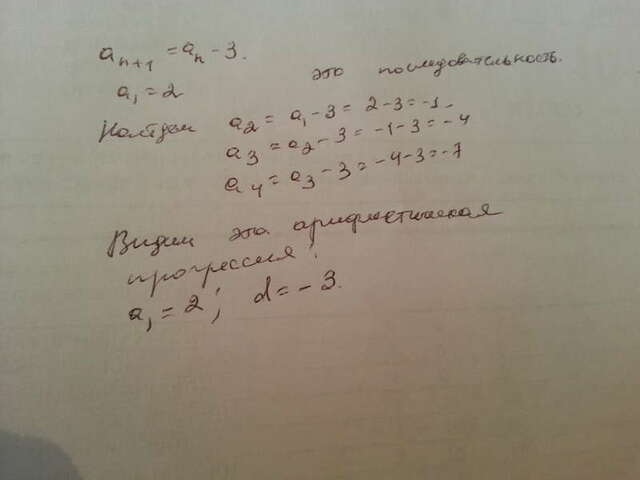 aₙ₊₁ = aₙ - 3.
a₁ = 2 это последовательность.
Найдем a₂ = a₁ - 3 = 2 - 3 = -1.
a₃ = a₂ - 3 = -1 - 3 = -4
a₄ = a₃ - 3 = -4 - 3 = -7
Видим это арифметическая
прогрессия!
a₁ = 2; d = -3.